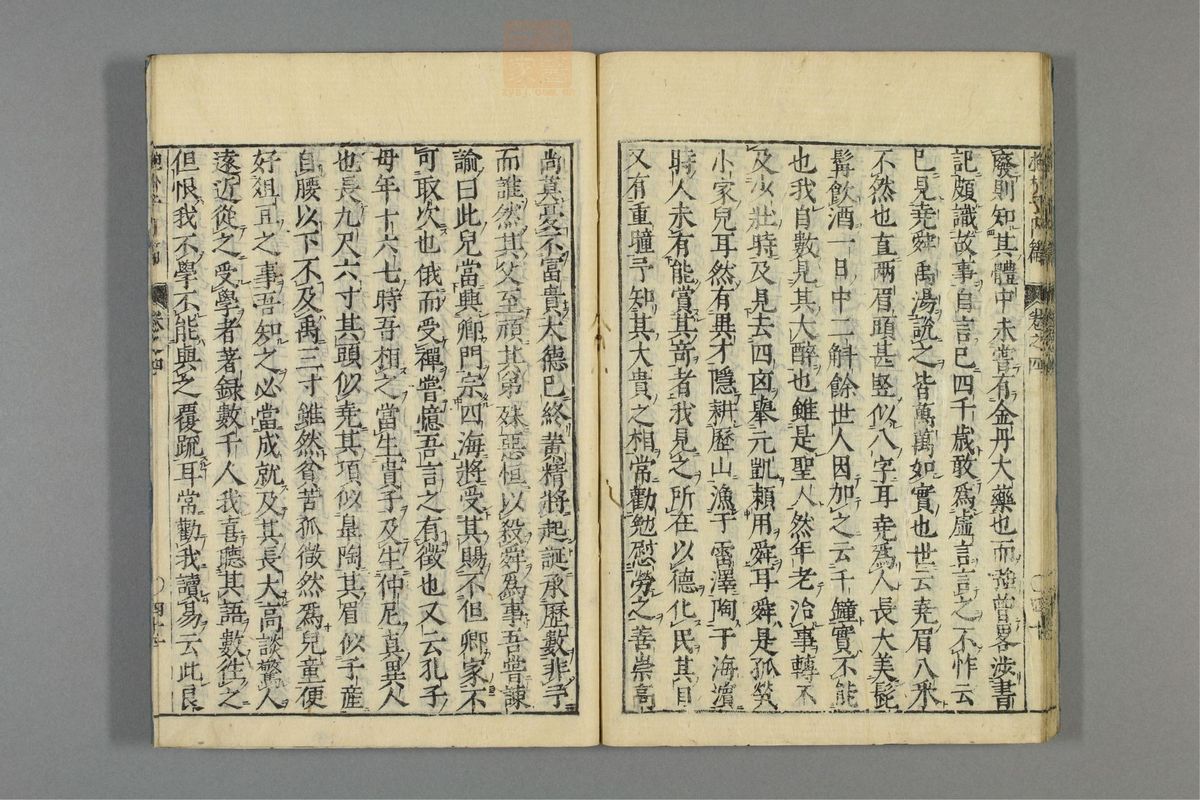 廢則知其體中未嘗有金丹大藥也而善曾畧渉書
記頗識故事自言已四千歳敢爲虛言言之不怍云
已見堯舜禹湯説之皆萬萬如實也世云堯眉八采
不然也直兩眉頭甚竪似八字耳堯爲人長大美髭
髯飲酒一日中二斛餘世人因加之云千鐘實不能
也我自數見其大醉也雖是聖人然年老治事轉不
及少壯時及見去四凶舉元凱賴用舜耳舜是孤煢
小家兒耳然有異才隱耕歷山漁于雷澤陶于海濱
時人未有能賞其竒者我見之所在以德化民其目
又有重瞳子知其大貴之相常勸勉慰勞之善崇高
尚莫憂不富貴火德已終黄精將起誕承歷數非子
而誰然其父至頑其弟殊惡恒以殺舜爲事吾嘗諫
諭曰此兒當興卿門宗四海將受其賜不但卿家不
可取次也俄而受禪嘗憶吾言之有徵也又云孔子
母年十六七時吾相之當生貴子及生仲尼真異人
也長九尺六寸其頭似堯其項似皐陶其眉似子産
自腰以下不及禹三寸雖然貧苦孤微然爲兒童便
好俎豆之事吾知之必當成就及其長大高談驚人
遠近從之受學者著録數千人我喜聽其語數徃之
但恨我不學不能與之覆疏耳常勸我讀易云此良
卷之四